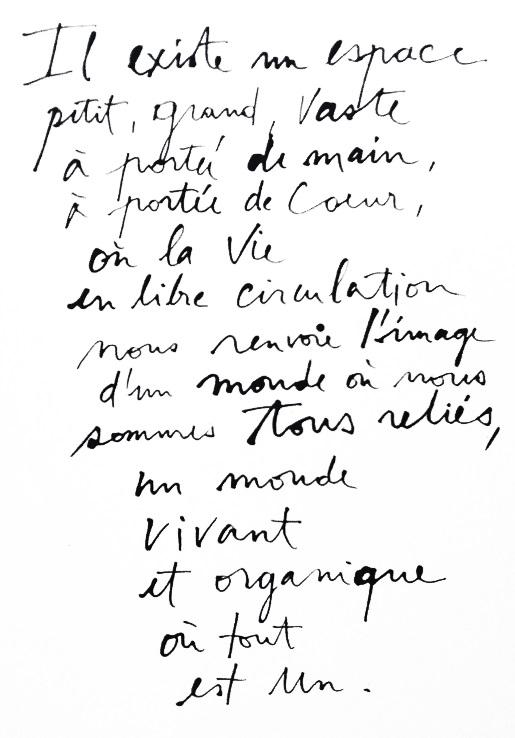 Il existe un espace
petit, grand, Vaste
à portée de main,
à portée de Coeur,
où la Vie
en libre circulation
nous renvoie l'image
d'un monde où nous
sommes Tous reliés,
un monde
vivant
et organique
où tout
est Un.